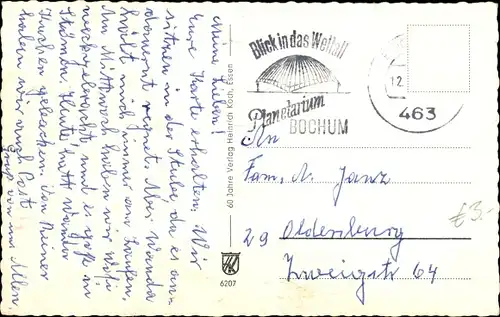 Meine Lieben!
Eure Karte erhalten. Wir
sitzen in der Stube da es an-
dauernd regnet. Aber Wanda
hält mich immer am laufen.
Am Mittwoch haben wir Möbel
und es gießt in
Strömen. Heute hatt Wanda
Kuchen gebacken. Von Reiner
haben wir auch Post
Gruß von uns Allen.
60 Jahre Verlag Heinrich Koch, Essen
6207
Blick in das Weltall
Planetarium
BOCHUM
12.
463
An
Fam. N. Janz
29 Oldenburg
Zweigstr 64
£3.-